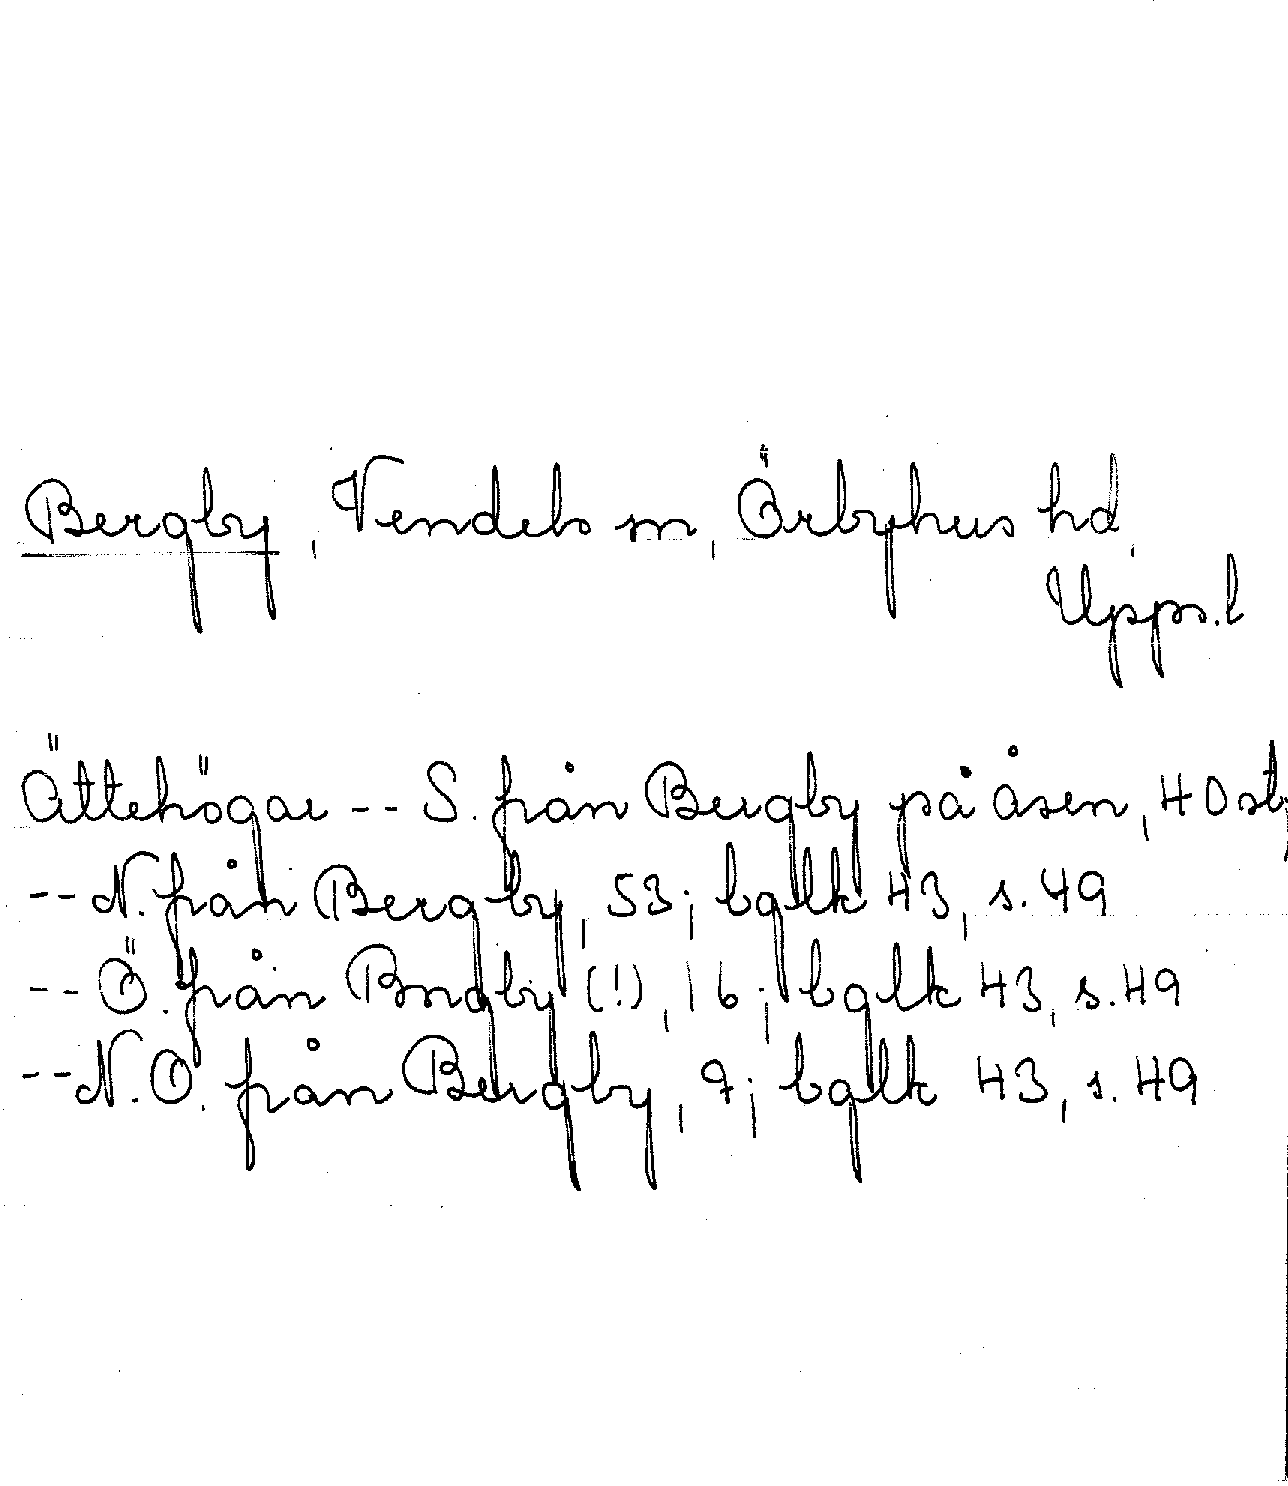 Bergby, Vendels sn, Örbyhus hd,
Upps. l
Ättehögar -- S. från Bergby på åsen, 40 st;
-- N. från Bergby, 53; bglk 43, s. 49
-- Ö. från Brngby (!), 16; bglk 43, s. 49
-- N.O. från Bergby, 7; bglk 43, s. 49